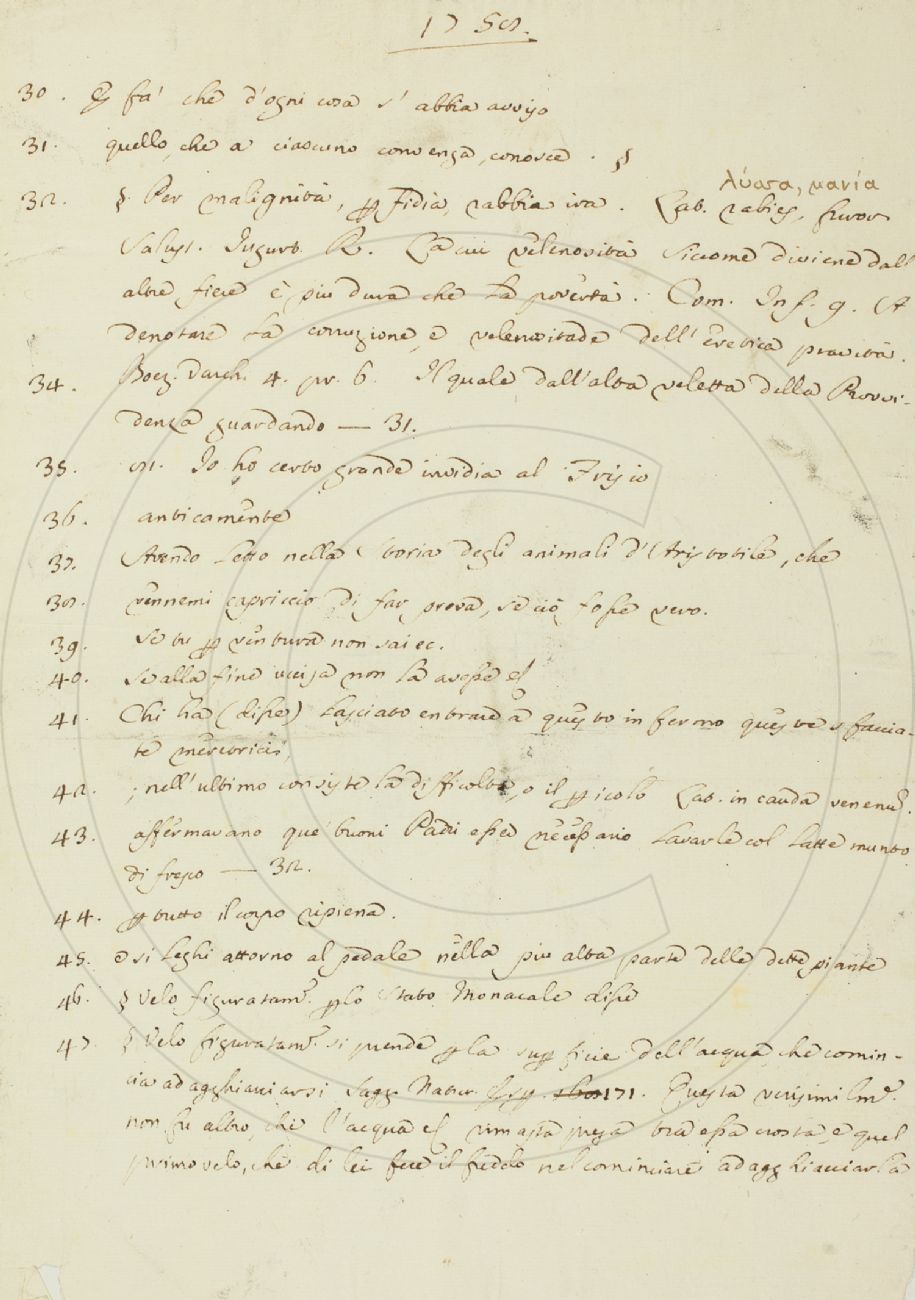 30. Et fa' che d'ogni cosa s'abbia avviso
31. quello, che a ciascuno convenga, conosce. §
λύσσα, μανία
32. § Per malignità, perfidia, rabbia ira. Lat. rabies, furor
Salust. Jugurt. R. La cui velenosità siccome diviene dall'
altre fiere è piu dura che la povertà. Com. Inf. 9. A
denotare la corruzione, e velenositade dell'eretica pravità.
34. Boez. Varch. 4. pr. 6. Il quale dall'alta veletta della Provvi-
denza guardando — 31.
35. Io ho certo grande invidia al Frisio
36. anticamente
37. Avendo letto nella Storia degli animali d'Aristotile, che
38. vennemi capriccio di far prova, se ciò fosse vero.
39. Se tu per ventura non sai ec.
40. se alla fine uccisa non la avesse
41. Chi ha (disse) lasciato entrare a questo infermo queste sfaccia-
te meretrici,
42. ; nell'ultimo consiste la difficoltà, o il pericolo Lat. in cauda venenu.
43. affermavano que' buoni Padri esser necessario lavarle col latte munto
di fresco — 32.
44. per tutto il corpo ripiena.
45. e si leghi attorno al pedale nella piu alta parte delle dette piante
46. § Velo figuratam. per lo Stato Monacale disse
47. § Velo figuratam. si prende per la superficie dell'acqua, che comin-
cia ad agghiacciarsi Sagg. Natur. 171. Questa verisimilm.
non fu altro, che l'acqua rimasta presa tra essa crosta, e quel
primo velo, che di lei fece il freddo nel cominciare ad agghiacciarla